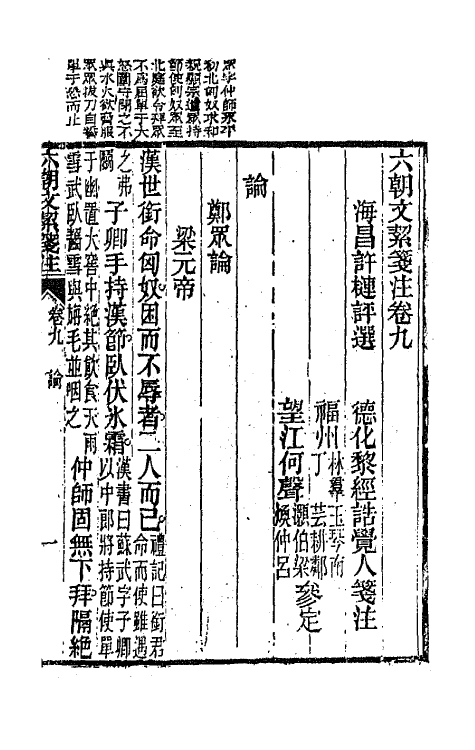 六朝文絜箋注卷九
海昌許槤評選
德化黎經誥覺人箋注
福州林羣玉琴南
福州丁芸耕鄰
望江何聲灝伯梁
煥仲呂
參定
論
鄭眾論
梁元帝
漢世銜命匈奴困而不辱者二人而已禮記曰銜君命而使雖遇
之弗鬭子卿手持漢節臥伏冰霜漢書曰蘇武字子卿以中郎將持節使單
于幽置大窖中絕其飲食天雨雪武臥齧雪與旃毛並咽之仲師固無下拜隔絕
六朝文絜箋注
卷九 論
一
眾字仲師永平
初北匈奴求和
親顯宗遣眾持
節使匈奴眾至
北庭欲令拜眾
不為屈單于大
怒圍守閉之不
與水火欲脅服
眾眾拔刀自誓
單于恐而止